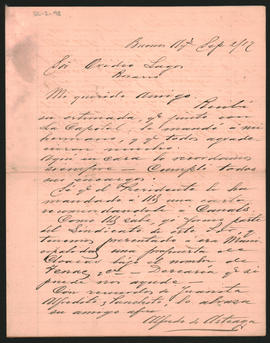 SL-2-98
Buenos Ays Sep 2/92
Sor Ovidio Lagos
Rosario
Mi querido Amigo
Recibí
su estimada, qe junto con
La Capital, la mandó a mi
hermano, y qe todos agrade
cieron mucho.
Aquí en casa lo recordamos
siempre - Cumplí todos
sus encargos
Sé qe el Presidente le ha
mandado á Ud una carta
recomendando a Canals
Como Ud sabe qe yo formo parte
del Sindicato de este Sr,
tenemos presentado a esa Muni
cipalidad una propuesta de
bajo el nombre de
Desearía qe si
puede nos ayude
Con recuerdos de Juanita
Alfredito y Panchito, lo abraza
su amigo afmo
Alfredo de Arteaga